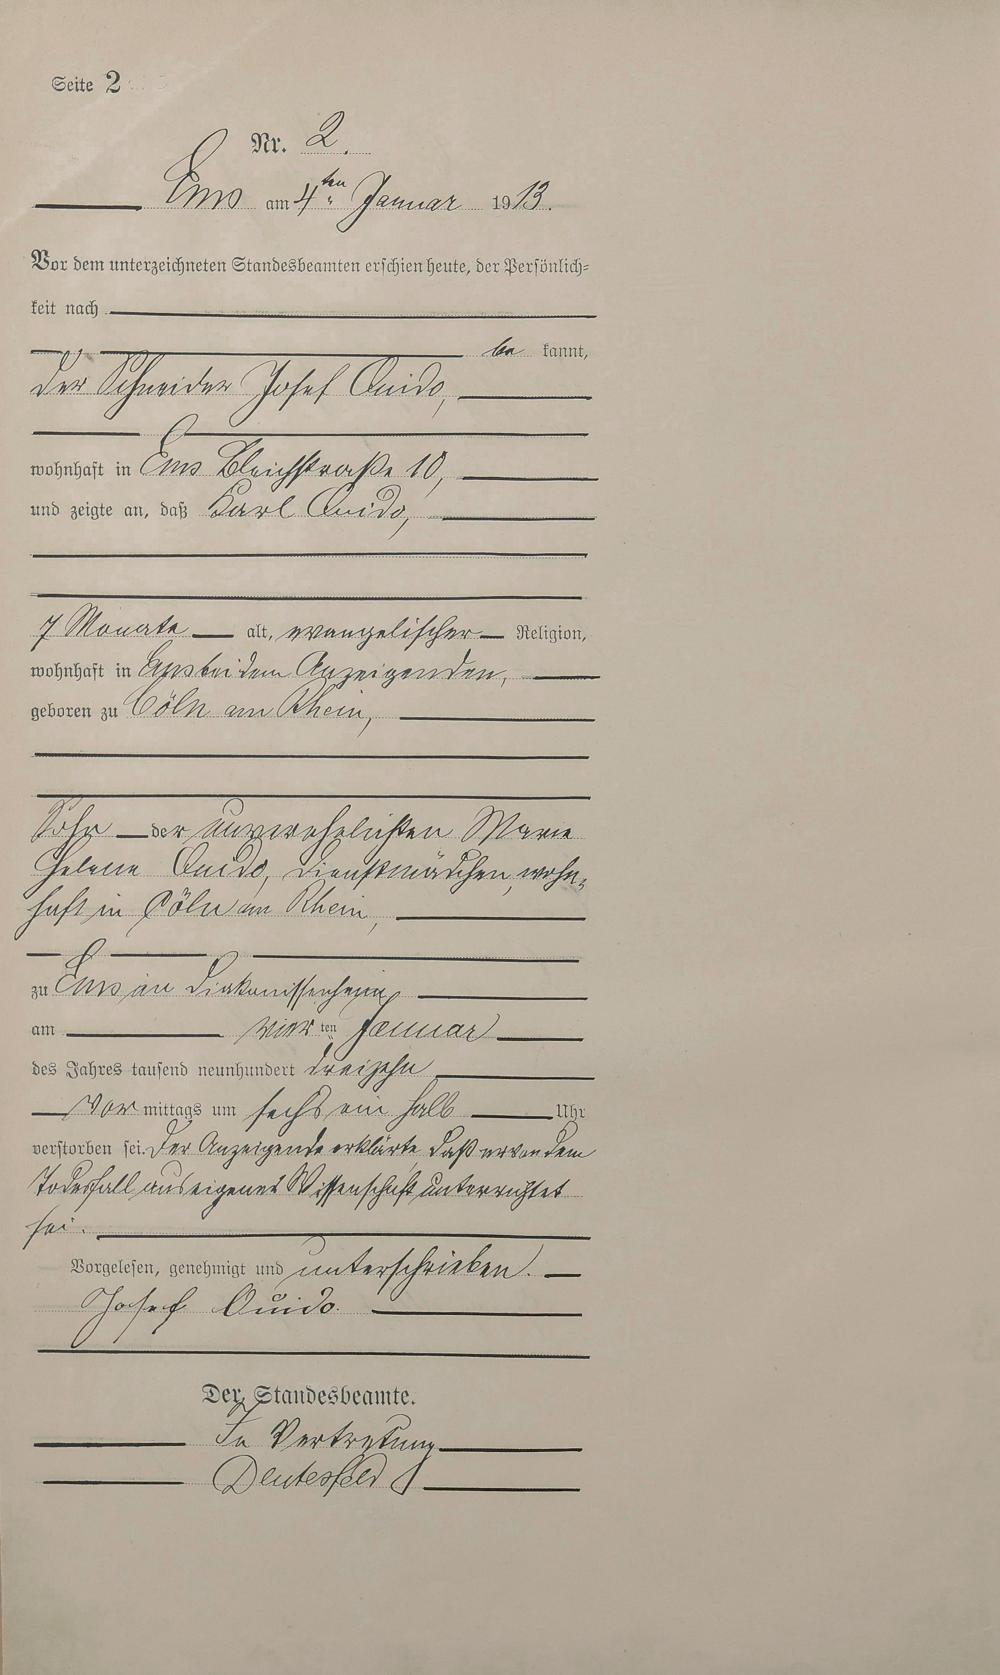 Seite 2
Nr. 2.
Ems am 4ten Januar 1913.
Vor dem unterzeichneten Standesbeamten erschien heute, der Persönlich=
keit nach
be kannt,
der Schneider Josef Quido,
wohnhaft in Ems Bleichstraße 10,
und zeigte an, daß Karl Quido,
7 Monate alt, evangelischer Religion,
wohnhaft in Ems bei dem Anzeigenden,
geboren zu Cöln am Rhein,
Sohn der unverehelichten Marie
Helene Quido, Dienstmädchen, wohn=
haft in Cöln am Rhein,
zu Ems im Diakonissenheim,
am vier ten Januar
des Jahres tausend neunhundert dreizehn
Vor mittags um sechs ein halb Uhr
verstorben sei. Der Anzeigende erklärte, daß er von dem
Todesfall aus eigener Wissenschaft unterrichtet
sei.
Vorgelesen, genehmigt und unterschrieben.
Josef Quido.
Der Standesbeamte.
In Vertretung